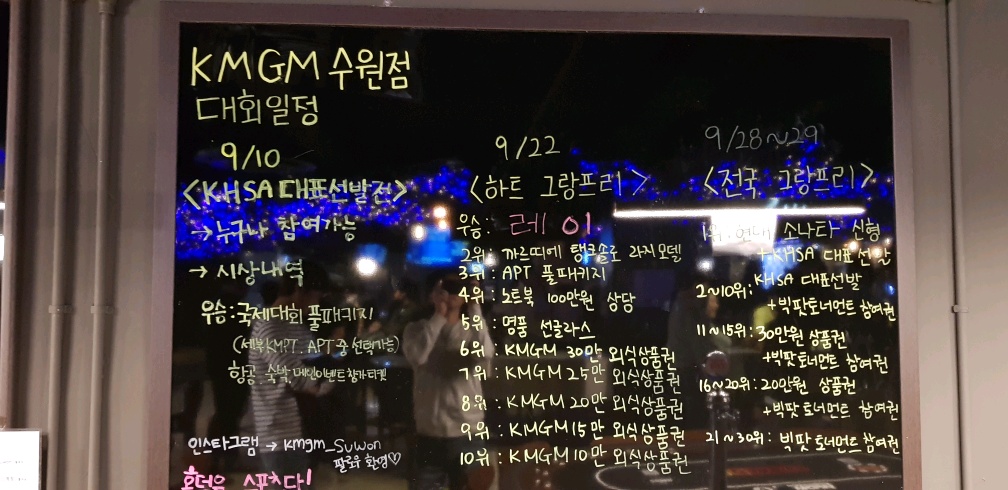 KMGM 수원점
대회일정
9/10
<KHSA 대표선발전>
→ 누구나 참여가능
→ 시상내역
우승: 국제대회 풀패키지
(세부KMPT. APT 중 선택가능)
항공. 숙박, 메인이벤트참가티켓
인스타그램 → kmgm_suwon
팔로우 환영♡
홀덤은 스포츠다!
9/22
<하트 그랑프리>
우승: 레이
2위: 까르띠에 탱크솔로 라지모델
3위: APT 풀패키지
4위: 노트북 100만원 상당
5위: 명품 선글라스
6위: KMGM 30만 외식상품권
7위: KMGM 25만 외식상품권
8위: KMGM 20만 외식상품권
9위: KMGM 15만 외식상품권
10위: KMGM 10만 외식상품권
9/28~29
<전국 그랑프리>
1위: 현대 소나타 신형
+KHSA 대표 선발
2~10위: KHSA 대표선발
+빅팟토너먼트 참여권
11~15위: 30만원 상품권
+빅팟토너먼트 참여권
16~20위: 20만원 상품권
+빅팟토너먼트 참여권
21~30위: 빅팟토너먼트참여권